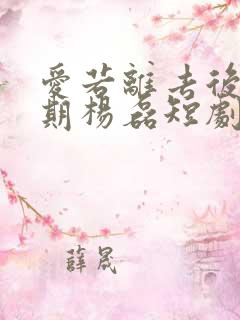 愛若離去後
期楊磊短劇
薛晟